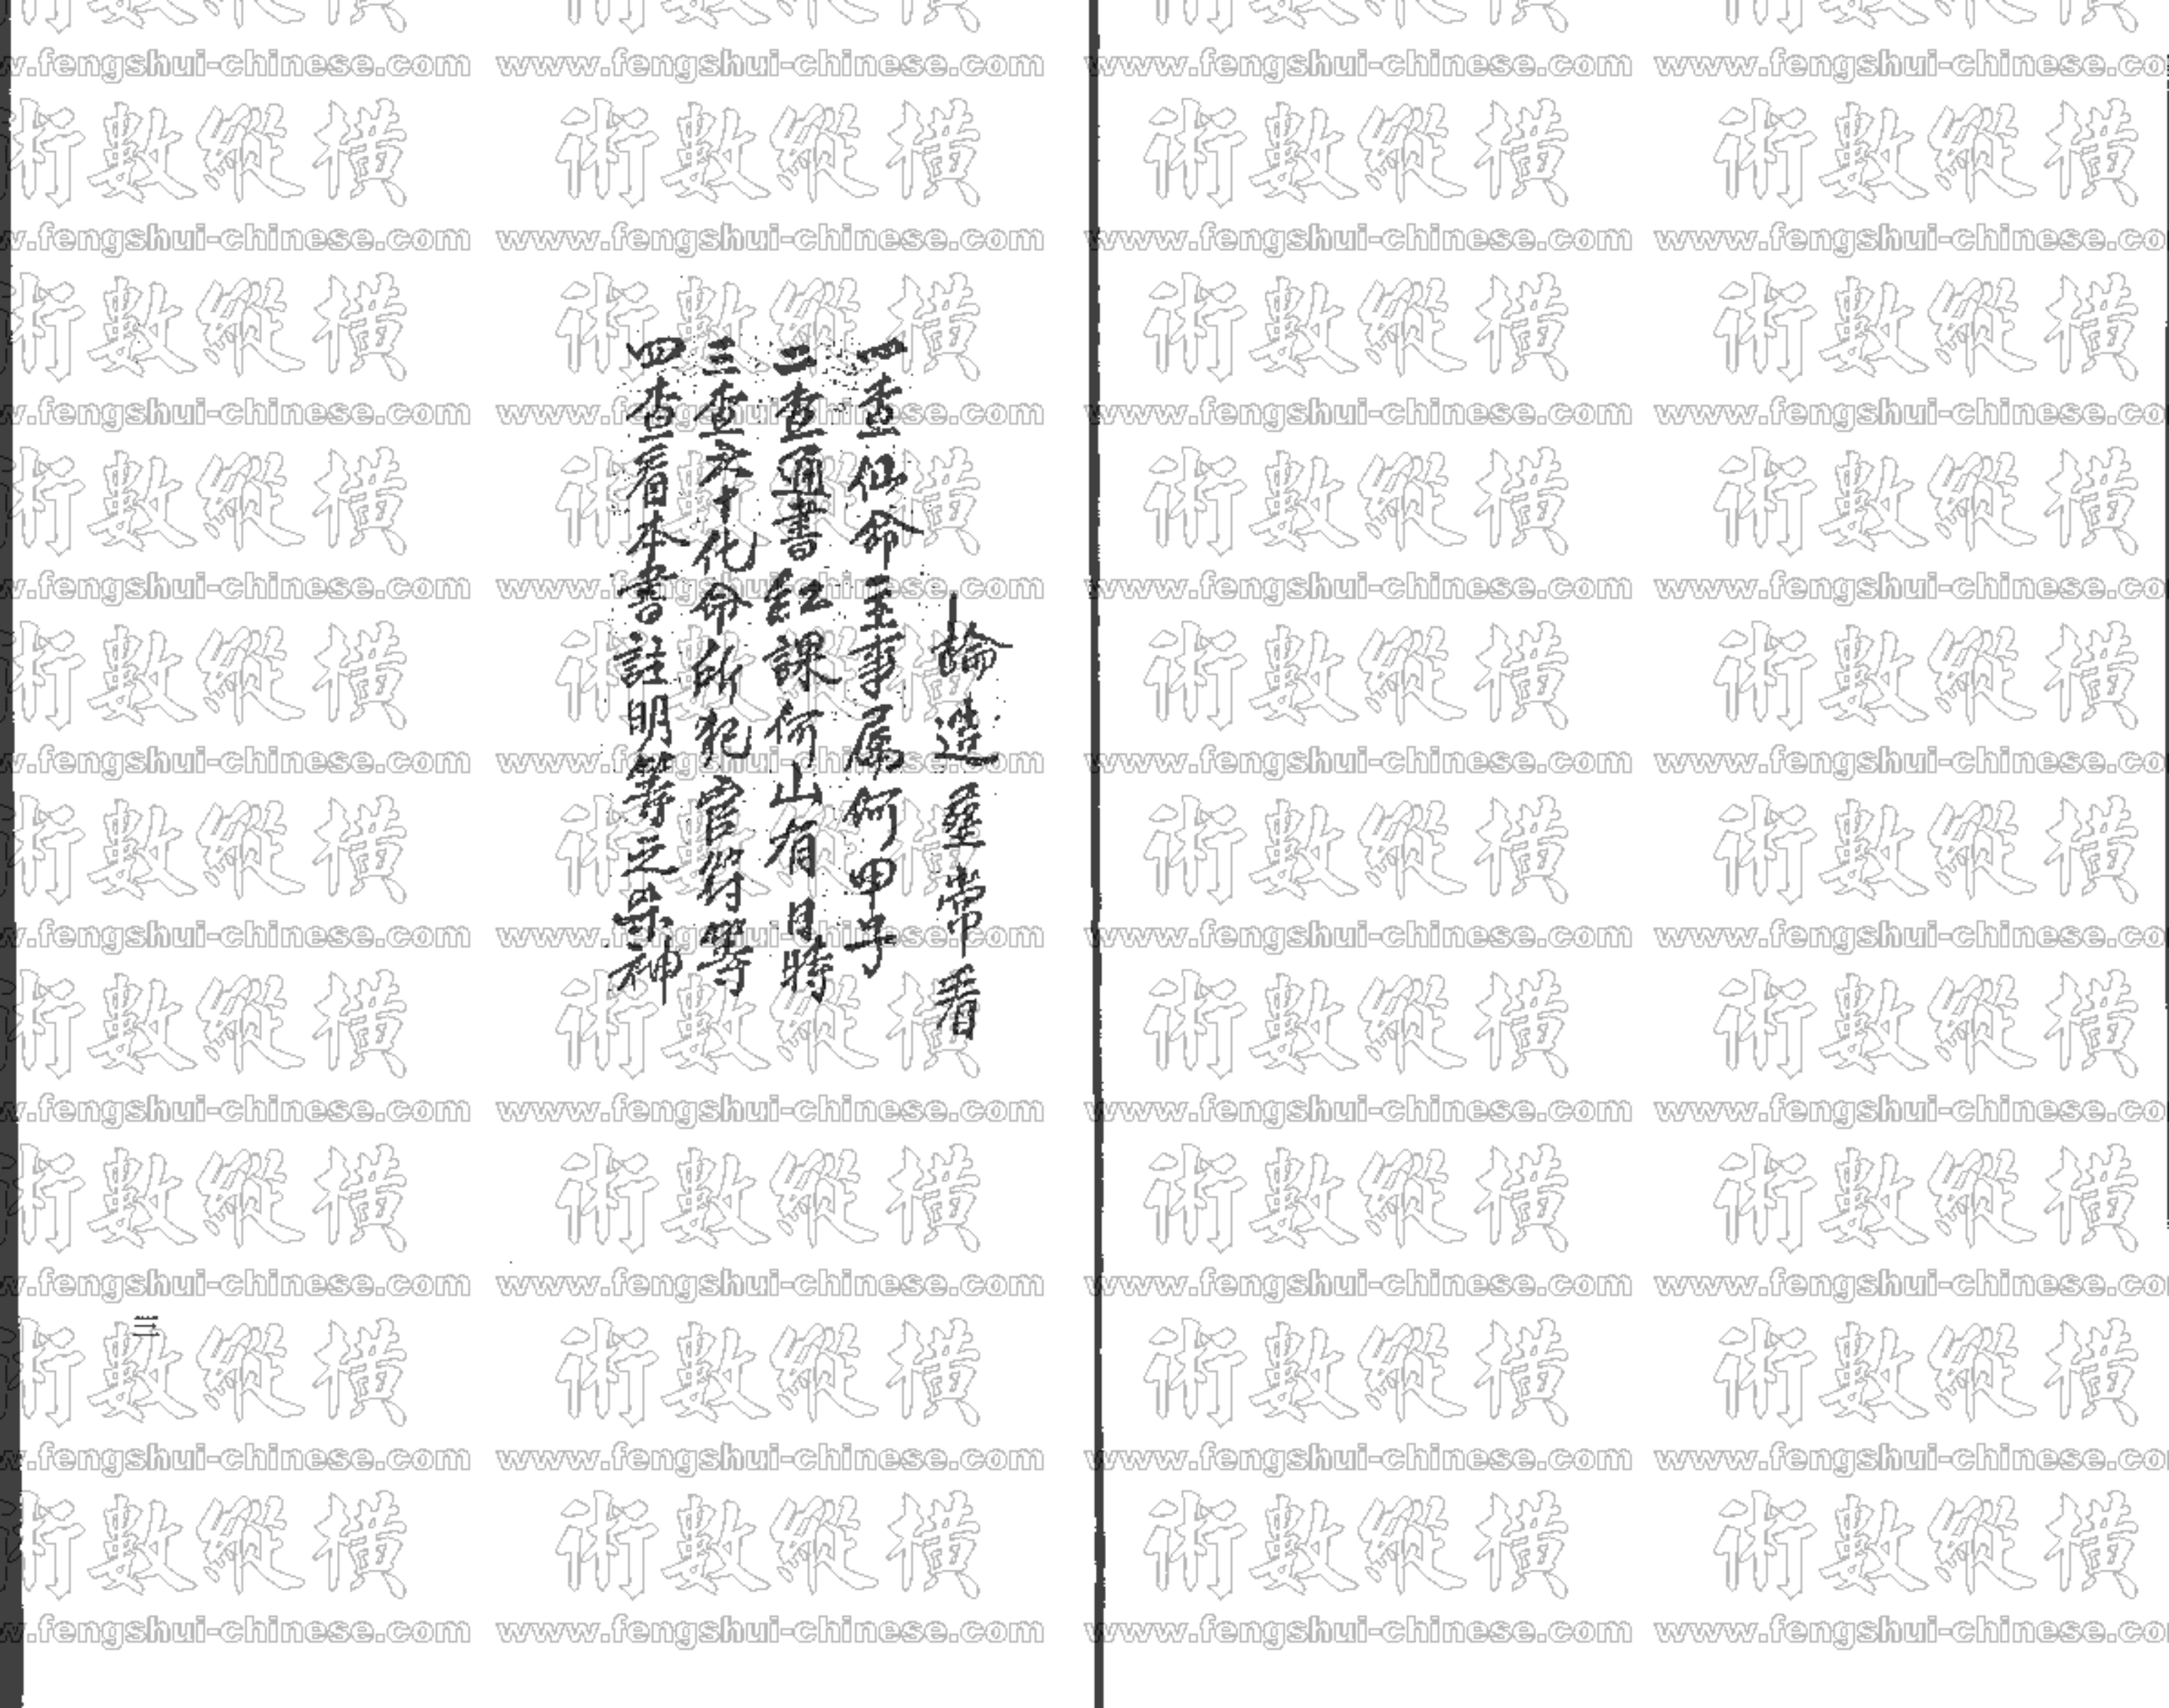 論造塋常看
一查仙命主事属何甲子
二查通書紅課何山有日時
三查六十化命所犯官符等
四查看本書註明等之祟神
三
術數縱橫
www.fengshui-chinese.com